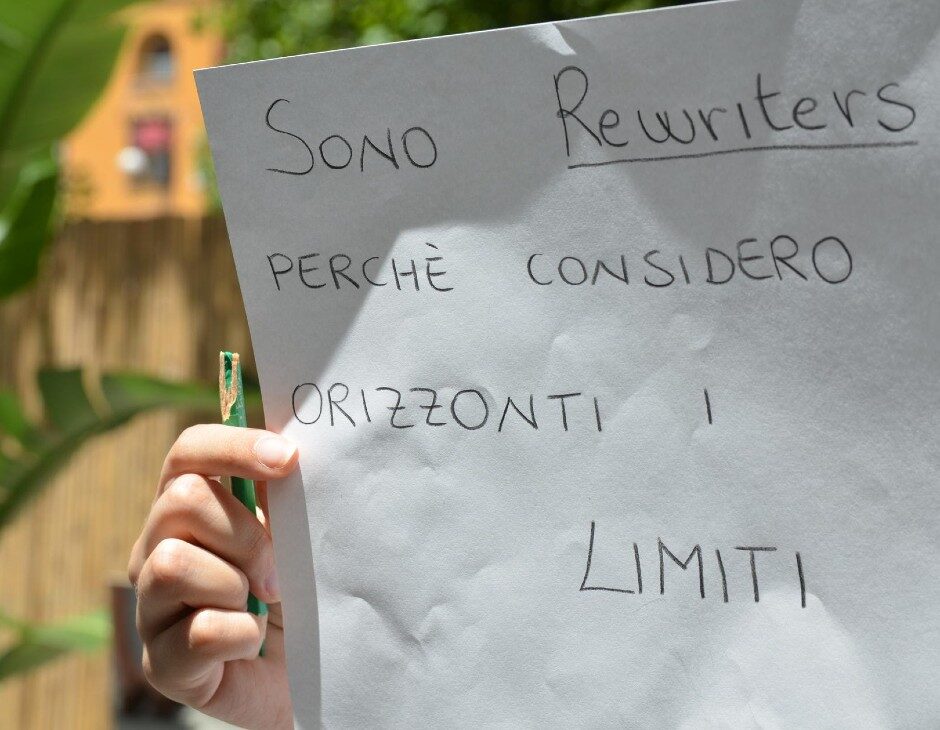 SONO Rewriters
PERCHÈ CONSIDERO
ORIZZONTI I
LIMITI